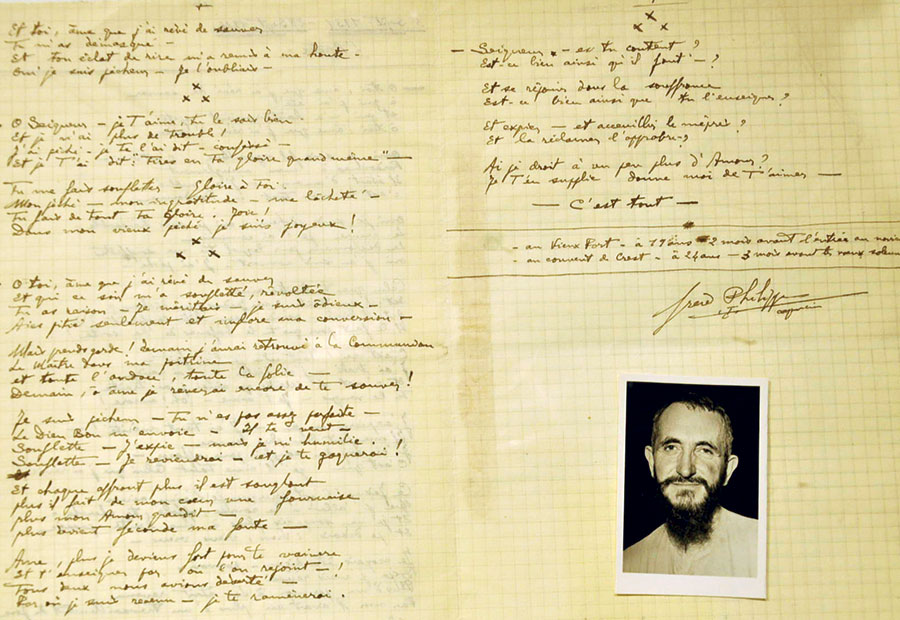 Et toi, âme que j'ai rêvé de sauver
Tu m'as démasqué -
Et ton éclat de rire m'a remis à ma honte -
Oui je suis pécheur - Je l'oubliais -
x
x x
O Seigneur - je T'aime, tu le sais bien
Et je n'ai plus de trouble !
J'ai péché - je te l'ai dit - confessé -
Et je T'ai dit : "tires en ta gloire quand même" -
Tu me fais souffleter - Gloire à Toi.
Mon péché - mon ingratitude - ma lâcheté -
Tu fais de tout ta Gloire. Joie !
Dans mon vieux péché je suis joyeux !
x
x x
O toi, âme que j'ai rêvé de sauver
Et qui ce soir m'a souffletté, révoltée
Tu as raison - Je méritais - je suis odieux -
Aies pitié seulement et implore ma conversion -
Mais prends garde ! demain j'aurai retrouvé à la Communion
Le Maître dans ma poitrine
et toute l'audace, toute la folie -
Demain, ô âme je rêverai encore de te sauver !
Je suis pécheur - Tu n'es pas assez parfaite -
Le Dieu Bon m'envoie - Il te veut -
Soufflette - J'expie - mais je m'humilie.
Soufflette - Je reviendrai - et je te gagnerai !
Et chaque affront plus il est sanglant
plus il fait de mon cœur une fournaise
plus mon Amour grandit -
plus devient féconde ma faute -
Ame, plus je deviens fort pour te vaincre
Et t'enseigner par où l'on rejoint - !
Tous deux nous avions déserté -
Par où je suis revenu - je te ramènerai.
x
x x
- Seigneur - es tu content ?
Est-ce bien ainsi qu'il faut - ?
Et se réjouir dans la souffrance
Est-ce bien ainsi que tu l'enseignes ?
Et expier - et accueillir le mépris ?
Et la réclamer l'approuver ?
Ai je droit à un peu plus d'Amour ?
Je T'en supplie donne moi de T'aimer -
- C'est tout -
- au Vieux Port - à 19 ans - 2 mois avant l'entrée au
- au couvent de Crest - à 24 ans - 3 mois avant les vœux
frère Philippe
capucin